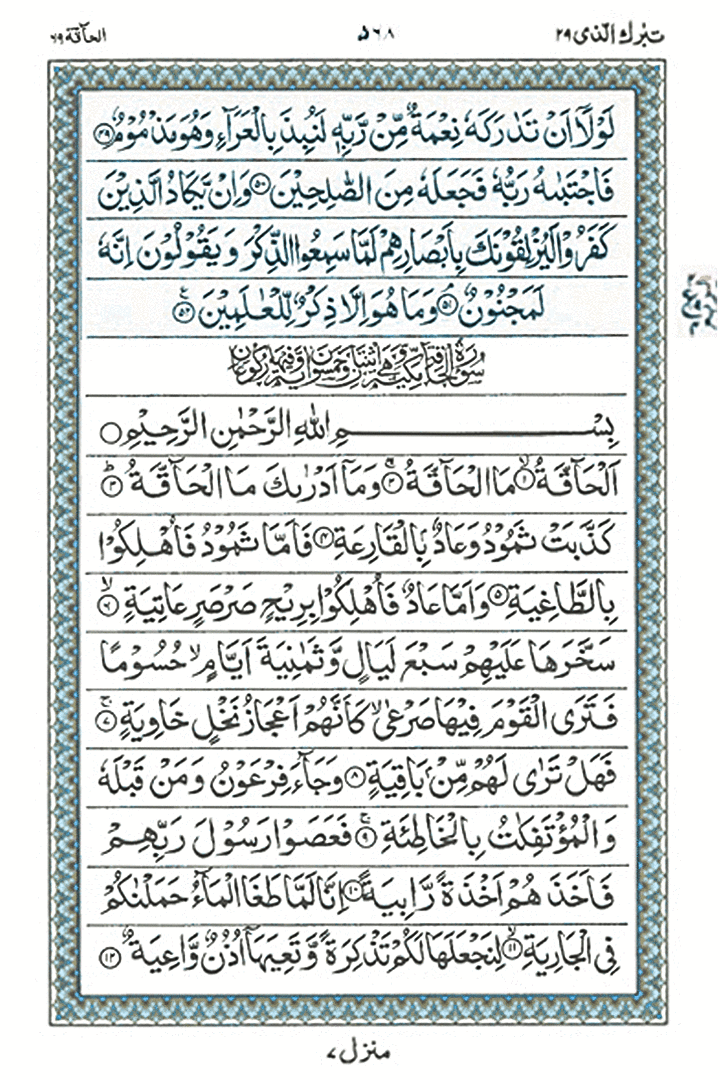 تبٰرك الّذی ٢٩
۵٦٨
الحآقّة ٦٩
لَوْلَاۤ اَنْ تَدٰرَكَهٗ نِعْمَةٌ مِّنْ رَّبِّهٖ لَنُبِذَ بِالْعَرَآءِ وَهُوَ مَذْمُوْمٌ ۝٤٩
فَاجْتَبٰىهُ رَبُّهٗ فَجَعَلَهٗ مِنَ الصّٰلِحِيْنَ ۝٥٠ وَاِنْ يَّكَادُ الَّذِيْنَ
كَفَرُوْا لَيُزْلِقُوْنَكَ بِاَبْصَارِهِمْ لَمَّا سَمِعُوا الذِّكْرَ وَيَقُوْلُوْنَ اِنَّهٗ
لَمَجْنُوْنٌ ۝٥١ وَمَا هُوَ اِلَّا ذِكْرٌ لِّلْعٰلَمِيْنَ ۝٥٢
سُوْرَةُ الْحَاقَّةِ مَكِّيَّةٌ وَّهِيَ اثْنَتَانِ وَخَمْسُوْنَ اٰيَةً وَّفِيْهَا رُكُوْعَانِ
بِسْمِ اللّٰهِ الرَّحْمٰنِ الرَّحِيْمِ ۝
اَلْحَآقَّةُ ۝١ۙ مَا الْحَآقَّةُ ۝٢ۚ وَمَاۤ اَدْرٰىكَ مَا الْحَآقَّةُ ۝٣ؕ
كَذَّبَتْ ثَمُوْدُ وَعَادٌۢ بِالْقَارِعَةِ ۝٤ فَاَمَّا ثَمُوْدُ فَاُهْلِكُوْا
بِالطَّاغِيَةِ ۝٥ وَاَمَّا عَادٌ فَاُهْلِكُوْا بِرِيْحٍ صَرْصَرٍ عَاتِيَةٍ ۝٦ۙ
سَخَّرَهَا عَلَيْهِمْ سَبْعَ لَيَالٍ وَّثَمٰنِيَةَ اَيَّامٍ ۙ حُسُوْمًا
فَتَرَى الْقَوْمَ فِيْهَا صَرْعٰى ۙ كَاَنَّهُمْ اَعْجَازُ نَخْلٍ خَاوِيَةٍ ۝٧ۚ
فَهَلْ تَرٰى لَهُمْ مِّنْۢ بَاقِيَةٍ ۝٨ وَجَآءَ فِرْعَوْنُ وَمَنْ قَبْلَهٗ
وَالْمُؤْتَفِكٰتُ بِالْخَاطِئَةِ ۝٩ۚ فَعَصَوْا رَسُوْلَ رَبِّهِمْ
فَاَخَذَهُمْ اَخْذَةً رَّابِيَةً ۝١٠ اِنَّا لَمَّا طَغَا الْمَآءُ حَمَلْنٰكُمْ
فِى الْجَارِيَةِ ۝١١ۙ لِنَجْعَلَهَا لَكُمْ تَذْكِرَةً وَّتَعِيَهَاۤ اُذُنٌ وَّاعِيَةٌ ۝١٢
منزل ٧